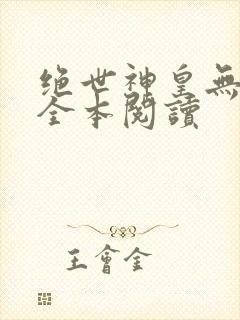 绝世神皇無
全本閱讀
王會金